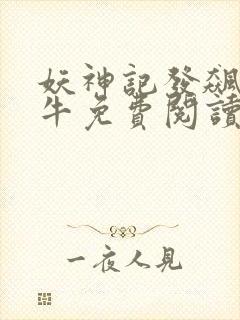 妖神記發飆
牛免費閱讀
一夜人見